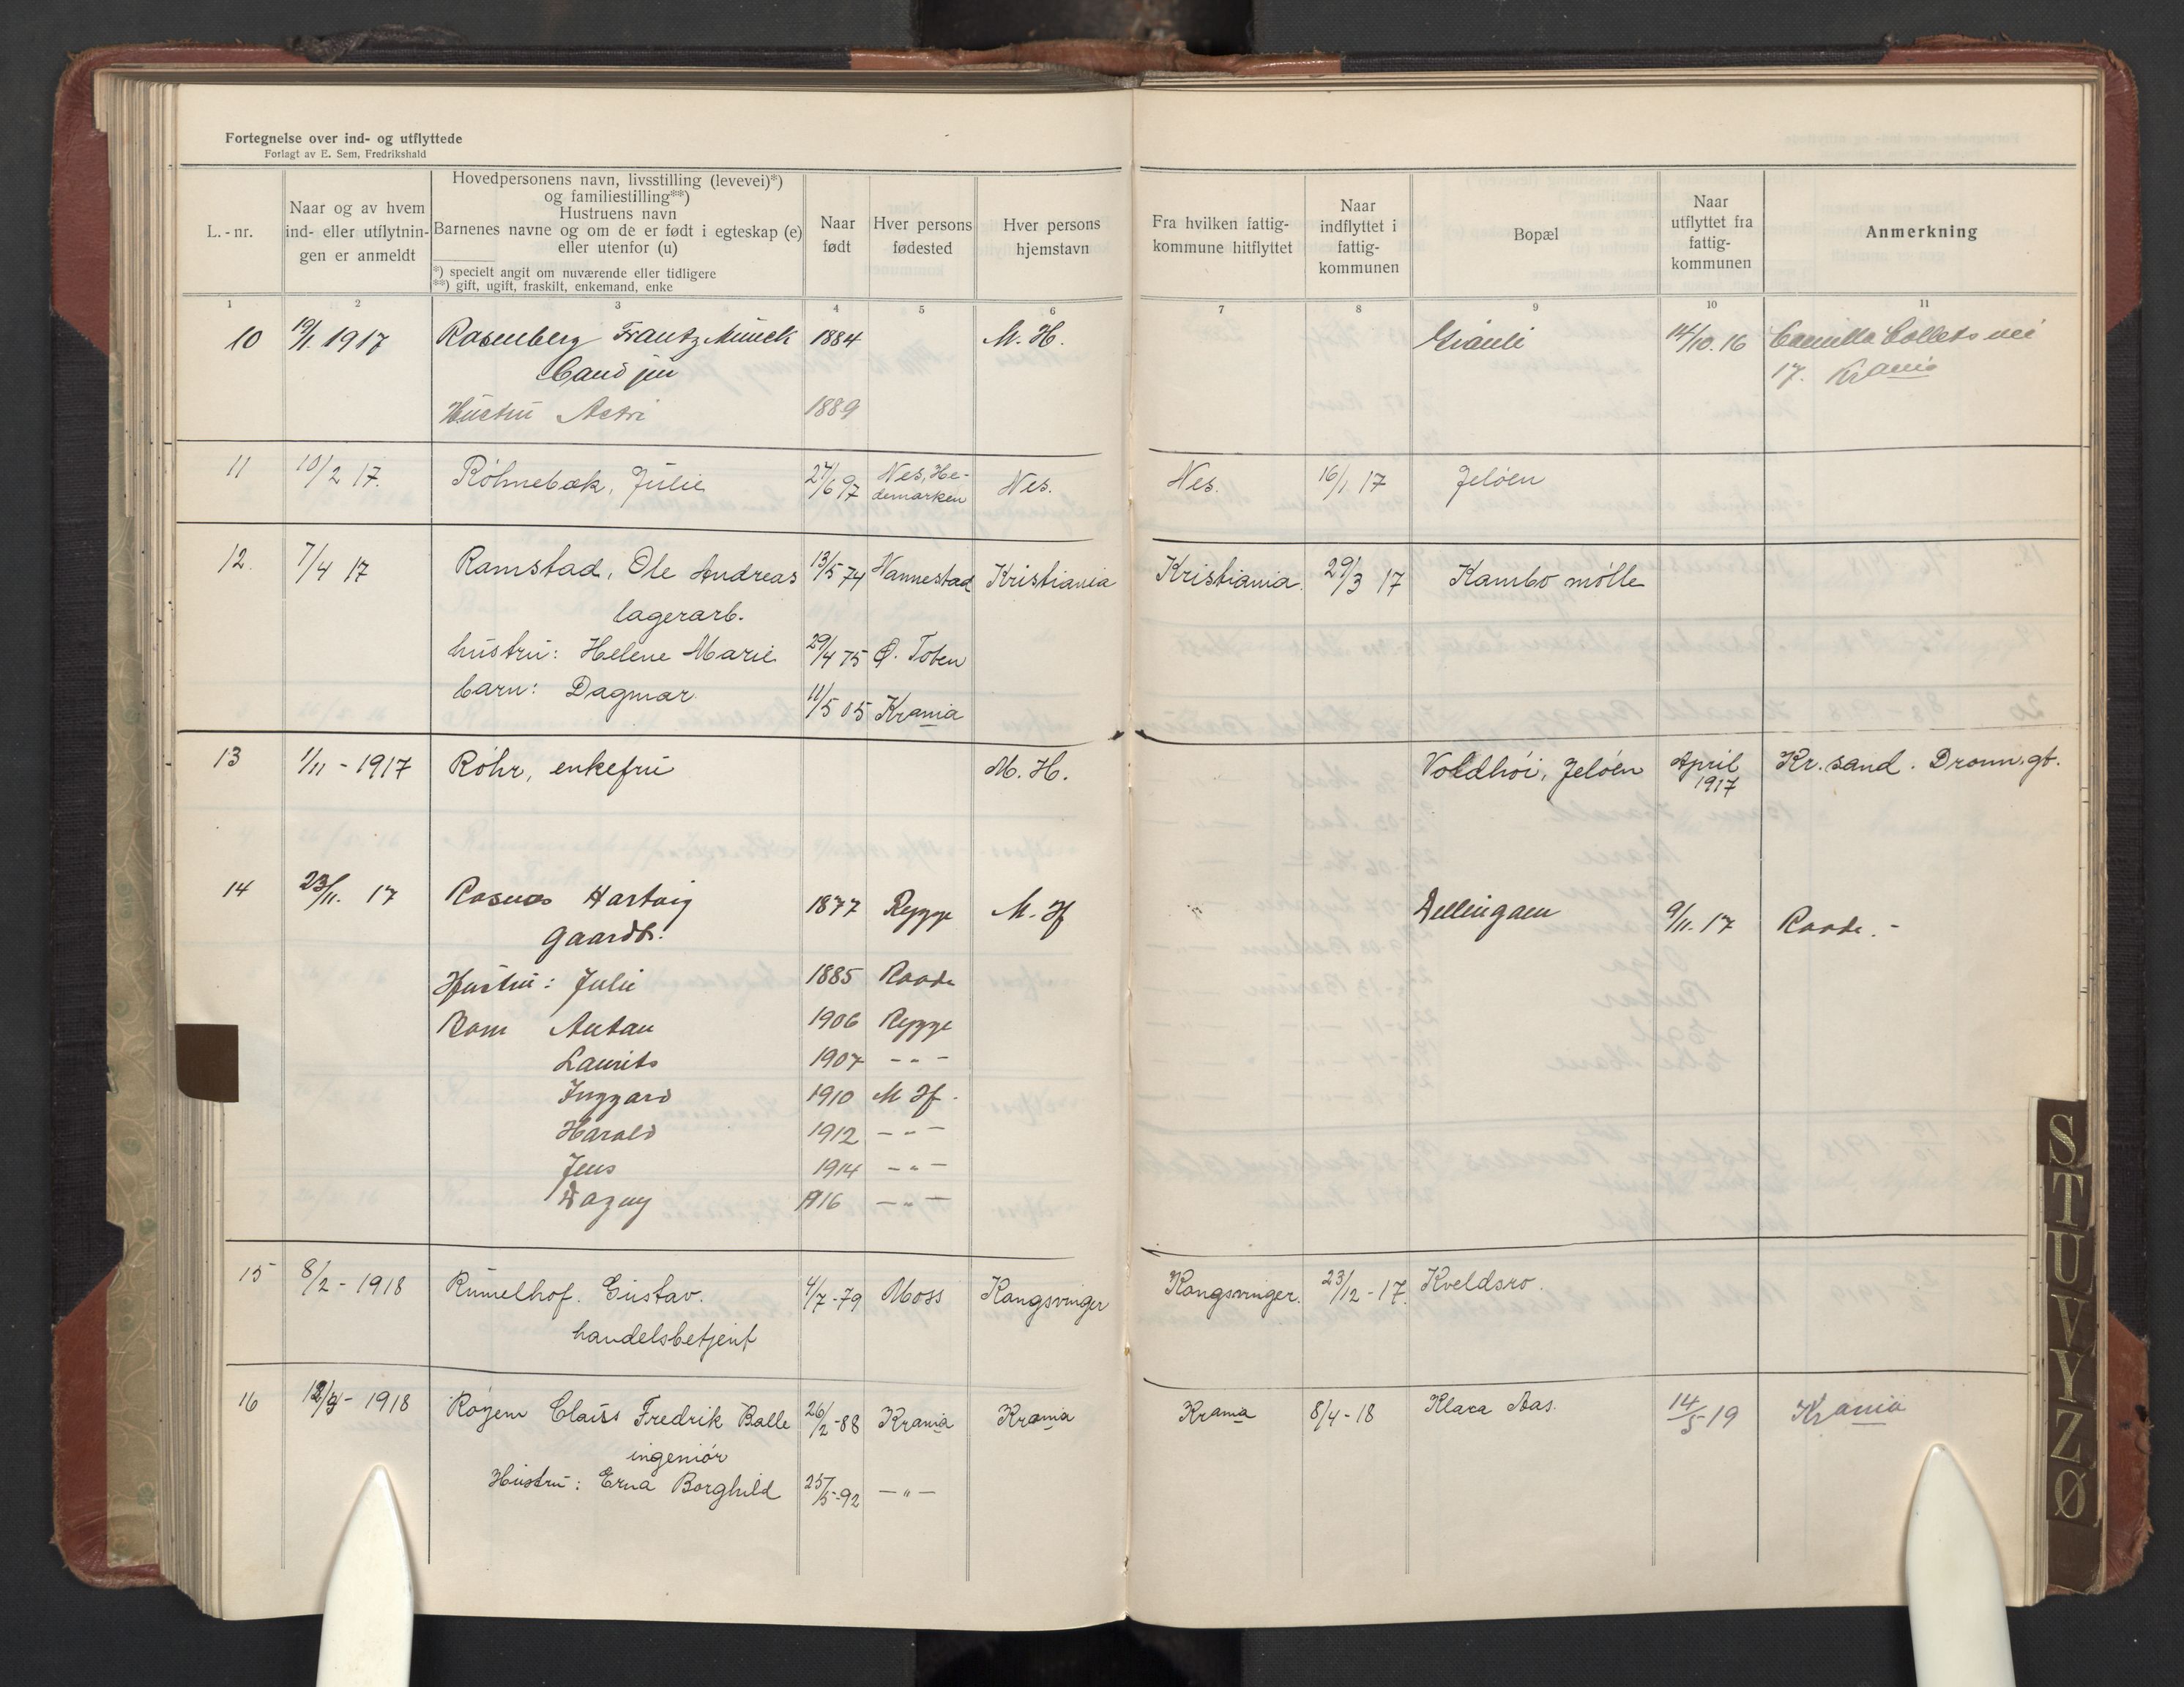 Fortegnelse over ind- og utflyttede
Forlagt av E. Sem, Fredrikshald
L.-nr.
Naar og av hvem ind- eller utflytnin- gen er anmeldt
Hovedpersonens navn, livsstilling (levevei)*)
og familiestilling**)
Hustruens navn
Barnenes navne og om de er født i egteskap (e)
eller utenfor (u)
*) specielt angit om nuværende eller tidligere
**) gift, ugift, fraskilt, enkemand, enke
Naar født
Hver persons fødested
Hver persons hjemstavn
Fra hvilken fattig- kommune hitflyttet
Naar indflyttet i fattig- kommunen
Bopæl
Naar utflyttet fra fattig- kommunen
Anmerkning
1 2 3 4 5 6 7 8 9 10 11
10 19/1. 1917 Rosenberg Frantz Munck 1884 M. H. 14/10. 16 Camilla Collets vei
Cand jur 17. Krania
Hustru Astri 1889
11 10/2 17. Røhnebæk, Julie 27/6 97 Nes, He-
demarken Nes. Nes. 16/1 17 Jeløen
12. 7/4 17 Ramstad, Ole Andreas 13/5 74 Vannestad Kristiania Kristiania. 29/3 17 Kambo mølle
lagerarb.
hustru: Helene Marie 29/4 75 Ø. Toten
barn: Dagmar 11/5 05 Krania
13 1/11 - 1917 Røhr, enkefru M. H. Voldhøi, Jeløen April 1917 Kr. sand. Dronn. gt.
14 23/11. 17 Rosnes Hartvig 1877 Rygge M. H Dillingøen 9/11. 17 Raade. -
Gaardb.
Hustru: Julie 1885 Raade
Barn Anton 1906 Rygge
Laurits 1907 - " -
Inggard 1910 M H.
Harald 1912 - " -
Jens 1914 - " -
Dagny 1916 - " -
15 8/2 - 1918 Rumelhof. Gustav. 4/7 - 79 Moss Kongsvinger Kongsvinger. 23/12 - 17. Kveldsro.
handelsbetjent
16 1918 Røyem Claus Fredrik Balle 26/2 - 88 Krania Krania Krania 8/4 - 18 Klara Aas. 14/5 - 19 Krania
ingeniør
Hustru: Erna Borghild 25/5 - 92 - " -
S
T
U
V
Y
Z
Ø